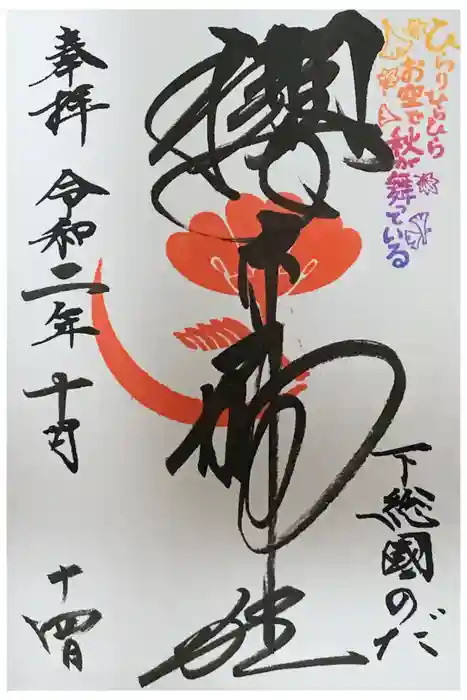 ひらりひらひら
お空で
秋が舞っている
下総國のだ
櫻木神社
奉拝 令和二年 十月 十四日